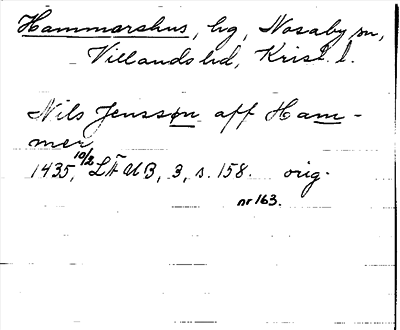 Hammarshus, hg, Nosaby sn,
Villands hd, Krist. l.
Nils Jensson aff Ham-
mer
1435, 10/2 LÄUB, 3, s. 158. orig.
nr 163.